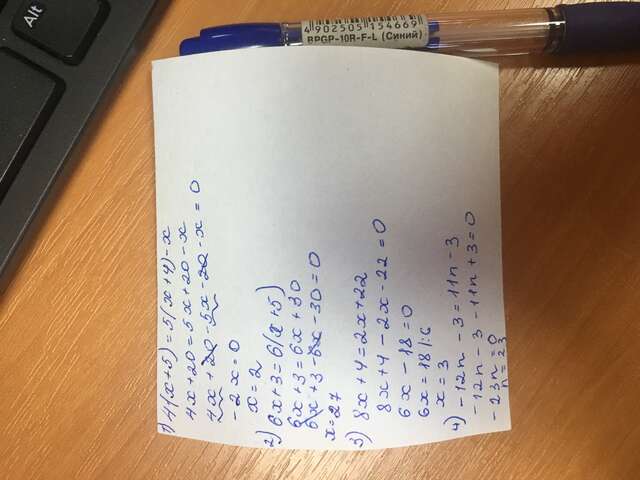 1) 4(x+5)=5(x+4)-x
4x+20=5x+20-x
4x+20-5x-20-x=0
-2x=0
x=2
2) 6x+3=6(x+5)
6x+3=6x+30
6x+3-6x-30=0
x=27
3) 8x+4=2x+22
8x+4-2x-22=0
6x-18=0
6x=18 |:6
x=3
4) -12n-3=11n-3
-12n-3-11n+3=0
-23n=0
n=23
Alt
4902505154669
BPGP-10R-F-L (Синий)